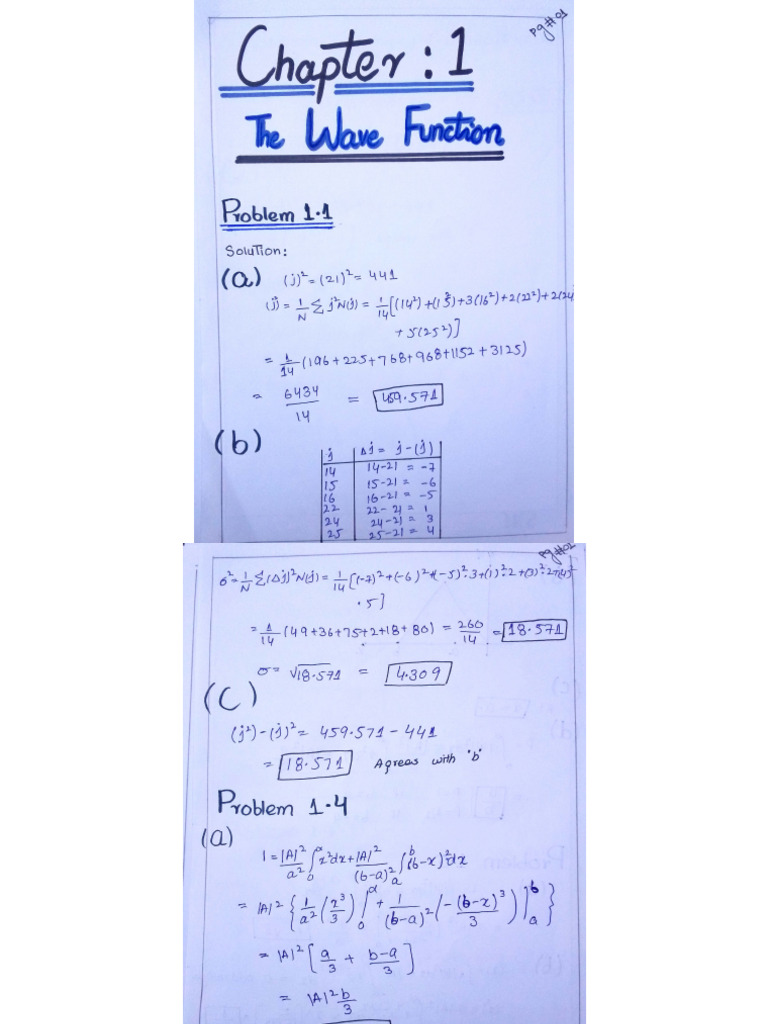 Pg#01
Chapter : 1
The Wave Function
Problem 1.1
Solution:
(a) (j)² = (21)² = 441
(j²) = 1/N Σ j²N(j) = 1/14 [(14²)+(15²)+3(16²)+2(22²)+2(24
+ 5(25²)]
= 1/14 (196+225+768+968+1152+3125)
= 6434/14 = 459.571
(b)
j | Δj = j-(j)
14 | 14-21 = -7
15 | 15-21 = -6
16 | 16-21 = -5
22 | 22-21 = 1
24 | 24-21 = 3
25 | 25-21 = 4
Pg#02
σ² = 1/N Σ(Δj)²N(j) = 1/14 [(-7)²+(-6)²+(-5)².3+(1)².2+(3)².2+(4)²
.5]
= 1/14 (49+36+75+2+18+80) = 260/14 = 18.571
σ = √18.571 = 4.309
(C)
(j²)-(j)² = 459.571 - 441
= 18.571 Agrees with 'b'
Problem 1.4
(a)
1 = |A|²/a² ∫₀ᵃ x²dx + |A|²/(b-a)² ∫ₐᵇ (b-x)²dx
= |A|² {1/a² (x³/3)|₀ᵃ + 1/(b-a)² (-(b-x)³/3)|ₐᵇ}
= |A|² [a/3 + b-a/3]
= |A|² b/3